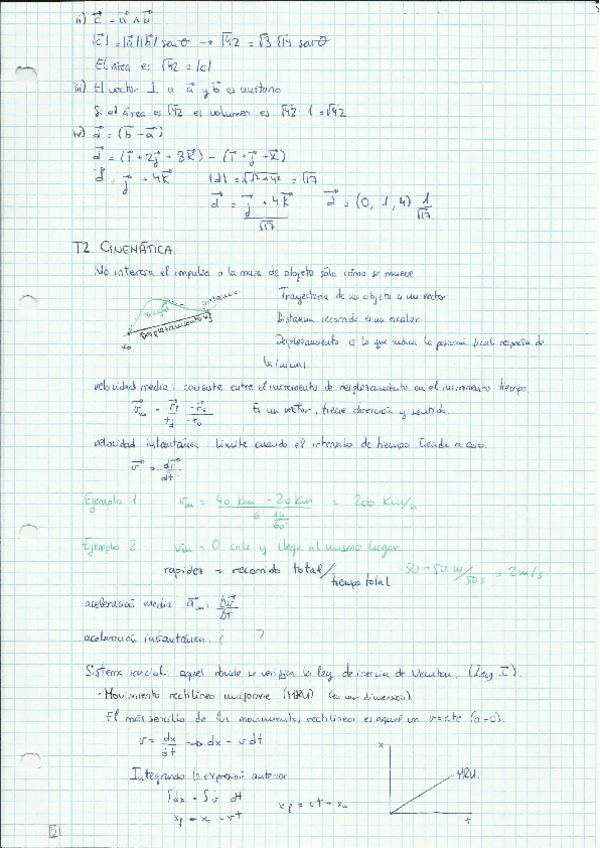 ii) c⃗ = a⃗ ∧ b⃗
|c⃗| = |a⃗| |b⃗| sen θ → √42 = √3 √14 sen θ
El área es √42 = |c|
iii) El vector ⊥ a a⃗ y b⃗ es unitario
Si el área es √42 el volumen es √42 · 1 = √42
iv) d⃗ = (b⃗ - a⃗)
d⃗ = (i⃗ + 2j⃗ + 3k⃗) - (i⃗ + j⃗ - k⃗)
d⃗ = j⃗ + 4k⃗ |d| = √1²+4² = √17
d⃗ = j⃗ + 4k⃗ / √17 d⃗ = (0, 1, 4) 1/√17
T2. CINEMÁTICA.
No interesa el impulso o la masa de objeto sólo cómo se mueve
distancia
Trayectoria de un objeto es un vector
Desplazamiento
Distancia recorrida es un escalar
Desplazamiento es lo que indica la posición final respecto de
la inicial.
velocidad media: cociente entre el incremento de desplazamiento en el incremento tiempo.
Es un vector, tiene dirección y sentido.
velocidad instantánea: Límite cuando el intervalo de tiempo tiende a cero.
v⃗ = dr⃗/dt
Ejemplo 1 vm = 40 km - 20 km / = 200 km/h
Ejemplo 2 vm = 0 sale y llega al mismo lugar.
rapidez = recorrido total / tiempo total 50+50 m/50s = 2m/s
aceleración media a⃗m = Δv⃗/Δt
aceleración instantánea: ( )
Sistema inercial: aquel donde se verifica la ley de inercia de Newton. (Ley I).
- Movimiento rectilíneo uniforme (MRU) (en una dimensión)
El más sencillo de los movimientos rectilíneos es aquel en v=cte (a=0).
v = dx/dt → dx = v dt
x
Integrando la expresión anterior
MRU.
∫dx = ∫v dt
t
51